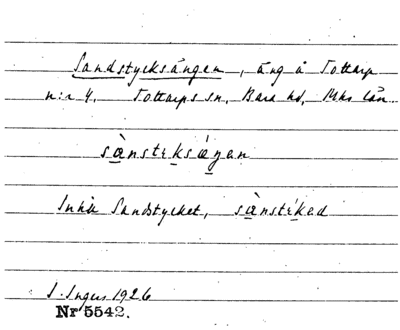 Sandstycksängen, äng å Tottarp
n:r 4. Tottarps sn, Bara hd, Mhs län
sànstɩksæ̀ŋen
Inhår Sandstycket, sànstɩ́ked
I. Ingers 1926
Nr 5542.